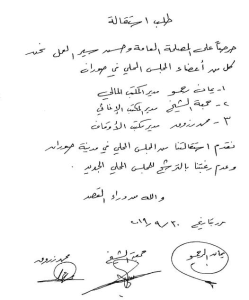 طلب استقالة
حرصاً على المصلحة العامة وحسن سير العمل نحن
كل من أعضاء المجلس المحلي في صوران
١ - يمان رحمو مدير المكتب المالي
٢ - جمعة الشيخ مدير المكتب الإغاثي
٣ - حمد زروق مدير مكتب الأوقاف
نقدم استقالتنا من المجلس المحلي في مدينة صوران
وعدم رغبتنا بالترشح للمجلس المحلي الجديد
والله من وراء القصد
حرر بتاريخ ٢٠١٩/٩/٣٠
جمعة الشيخ